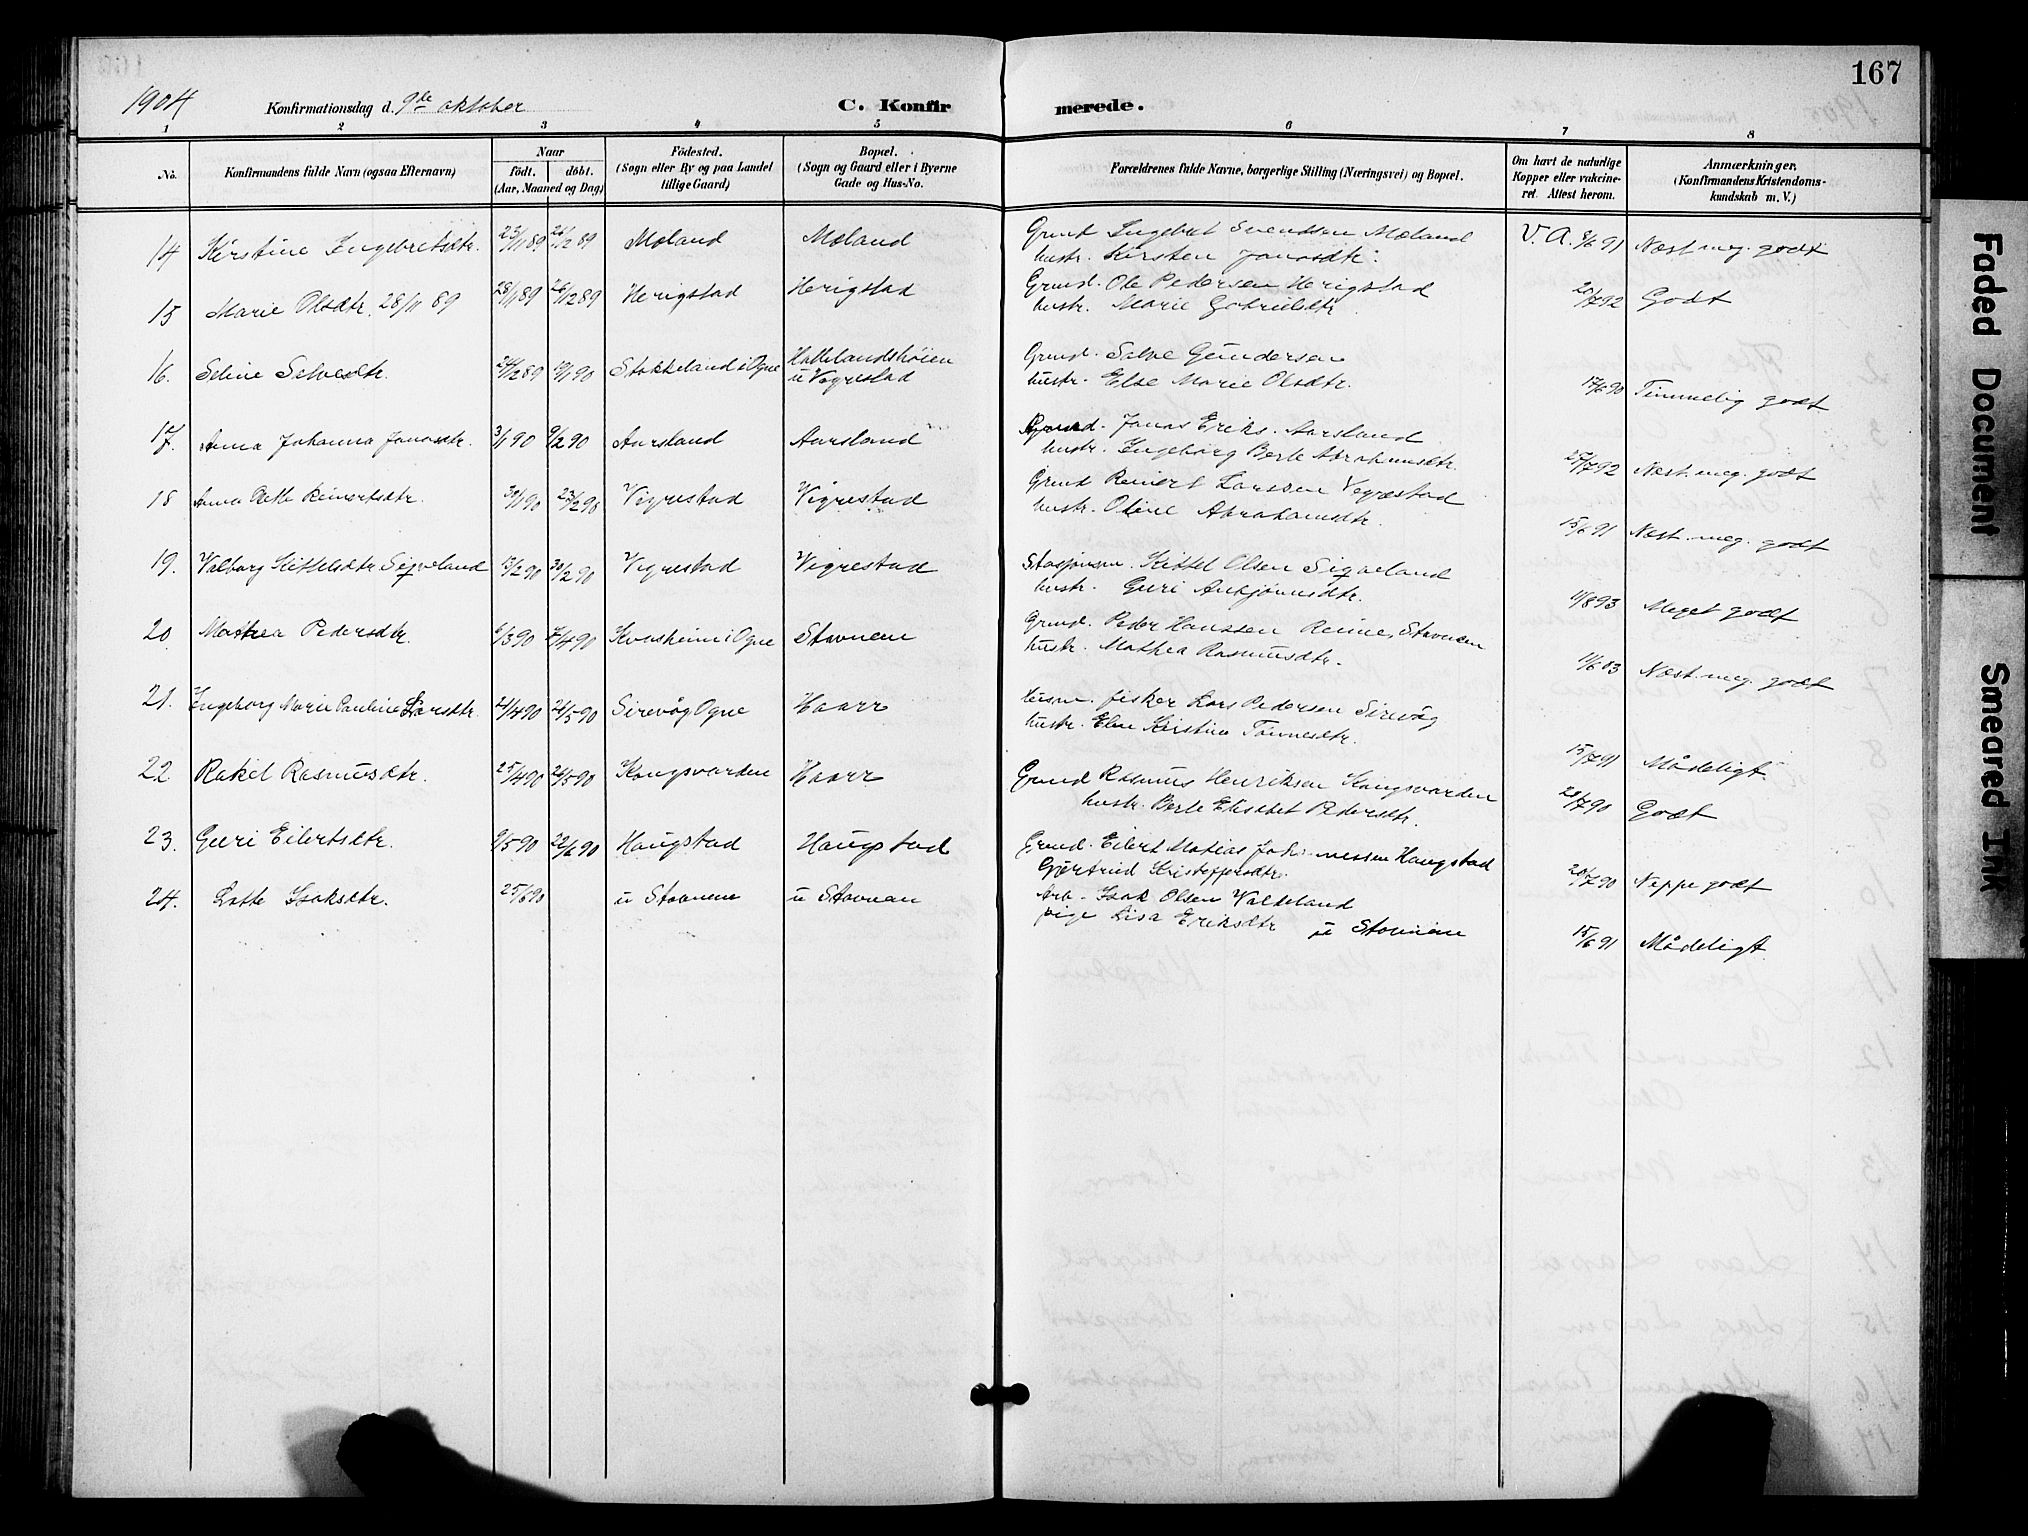 167
1904 Konfirmationsdag d. 9de oktober C. Konfirmerede.
1 2 3 4 5 6 7 8
No. Konfirmandens fulde Navn (ogsaa Efternavn) Naar födt. döbt. (Aar, Maaned og Dag) Födested. (Sogn eller By og paa Landet tillige Gaard) Bopæl. (Sogn og Gaard eller i Byerne Gade og Hus-No. Forældrenes fulde Navne, borgerlige Stilling (Næringsvei) og Bopæl. Om havt de naturlige Kopper eller vakcineret. Attest herom. Anmærkninger. (Konfirmandens Kristendomskundskab m. V.)
14 Kirstine Ingebretsdtr. 23/11 89 26/12 89 Moland Moland Grund Ingebret Svendsen Moland V. A. 8/6 91 Næst meg. godt
hustr. Kirsten Jonasdtr.
15 Marie Olsdtr. 28/11 89 28/11 89 26/12 89 Herigstad Herigstad Grund. Ole Pedersen Herigstad 20/7 92 Godt
hustr. Marie Gabrielsdtr
16. Seline Salvesdtr. 24/12 89 19/1 90 Stokkeland i Ogne Hattelandshöien Grund. Salve Gundersen
u Vigrestad hustr. Else Marie Olsdtr. 17/6 90 Temmelig godt
17. Anna Johanna Jonasdtr. 3/1 90 9/2 90 Aarsland Aarsland Grund. Jonas Eriks. Aarsland
hustr. Ingeborg Berte Abrahamsdtr. 27/7 92 Næst. meg. godt
18 Anna Reinertsdtr. 30/1 90 23/2 90 Vigrestad Vigrestad Grund Reinert Larssen Vigrestad
hustr. Oline Abrahamsdtr. 15/6 91 Næst. meg. godt
19. Valborg Kittelsdtr Sigveland 13/2 90 30/2 90 Vigrestad Vigrestad Kittel Olsen Sigveland
hustr. Guri 11/8 93 Meget godt
20 Mathea Pedersdtr. 6/3 90 7/4 90 Kvasheim i Ogne Stavnem Grund. Peder Hanssen Reime, Stavnem
hustr. Mathea Rasmusdtr. 11/6 03 Næst. meg. godt
21. Ingeborg Marie Pauline Larsdtr. 21/4 90 26/5 90 Sirevåg Ogne Haarr Husm. fisker Lars Pedersen Sirevåg
hustr. Elen Kirstine Tönnesdtr. 15/7 91 Mådeligt
22 Rakel Rasmusdtr. 25/4 90 26/5 90 Kongsvarden Haarr Grund Rasmus Henriksen Kongsvarden
hustr. Berte Elisabet Pedersdtr. 28/7 90 Godt
23. Guri Eilertsdtr. 9/5 90 22/6 90 Haugstad Haugstad Grund. Eilert Matias Johannessen Haugstad
Gjertrud Kristoffersdtr. 20/7 90 Neppe godt
24. Lotte Isaksdtr. 25/6 90 u Stavnem u Stavnem Arb. Isak Olsen Valkeland
pige Lisa Eriksdtr u Stavnem 15/6 91 Mådeligt
Faded Document
Smeared Ink